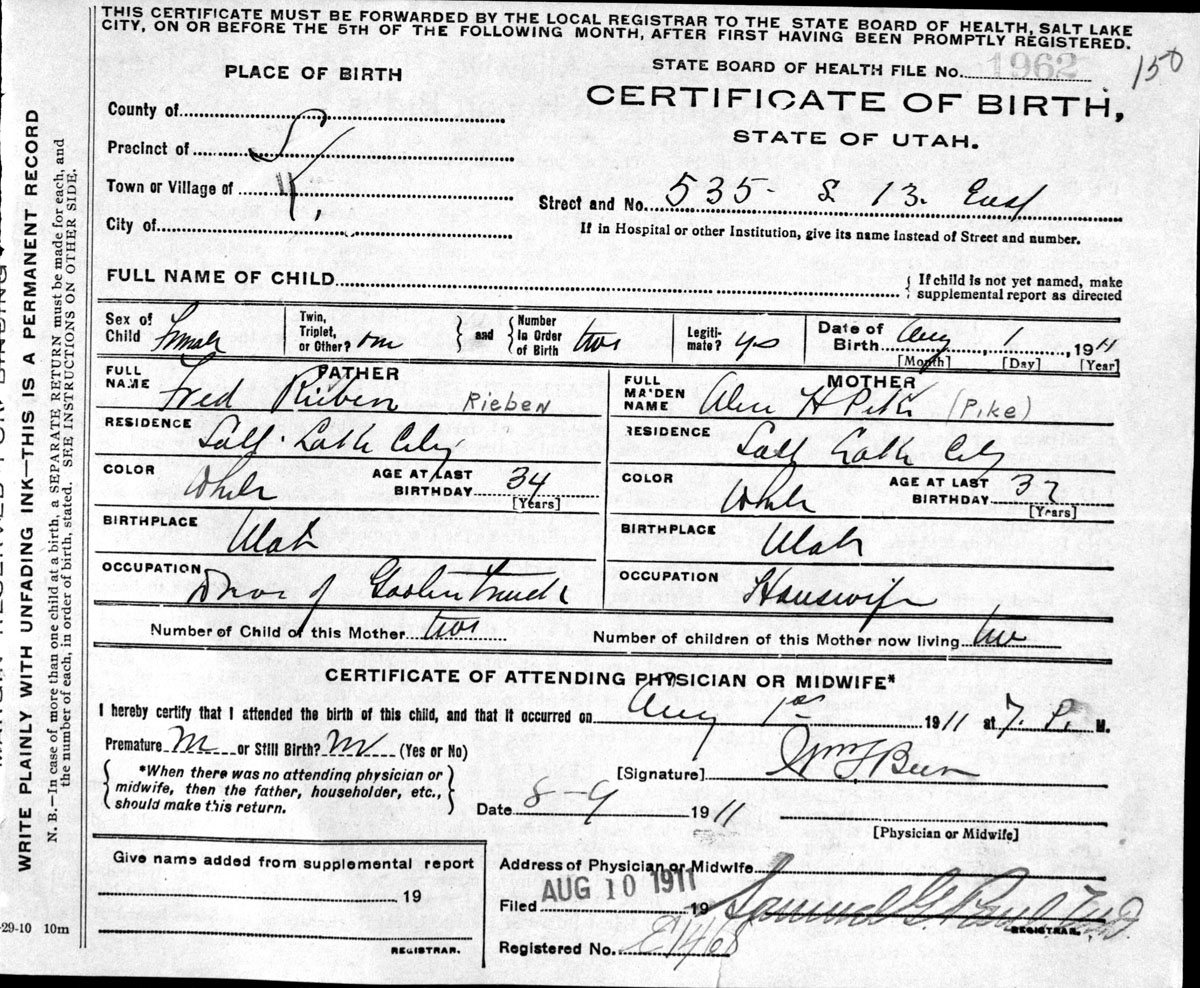 THIS CERTIFICATE MUST BE FORWARDED BY THE LOCAL REGISTRAR TO THE STATE BOARD OF HEALTH, SALT LAKE
CITY, ON OR BEFORE THE 5TH OF THE FOLLOWING MONTH, AFTER FIRST HAVING BEEN PROMPTLY REGISTERED.
WRITE PLAINLY WITH UNFADING INK—THIS IS A PERMANENT RECORD
N. B.—In case of more than one child at a birth, a SEPARATE RETURN must be made for each, and
the number of each, in order of birth, stated. SEE INSTRUCTIONS ON OTHER SIDE.
PLACE OF BIRTH
STATE BOARD OF HEALTH FILE No. 1962
150
CERTIFICATE OF BIRTH,
STATE OF UTAH.
County of
Precinct of
Town or Village of
City of
Street and No. 535 S 13. East
If in Hospital or other Institution, give its name instead of Street and number.
FULL NAME OF CHILD
If child is not yet named, make
supplemental report as directed
Sex of Child Female
Twin, Triplet, or Other? one
and
Number in Order of Birth two
Legitimate? yes
Date of Birth Aug 1 1911
[Month] [Day] [Year]
FATHER
FULL NAME Fred Rieben Rieben
RESIDENCE Salt Lake City
COLOR White
AGE AT LAST BIRTHDAY 34
[Years]
BIRTHPLACE Utah
OCCUPATION Driver of
MOTHER
FULL MAIDEN NAME H Pike (Pike)
RESIDENCE Salt Lake City
COLOR White
AGE AT LAST BIRTHDAY 37
[Years]
BIRTHPLACE Utah
OCCUPATION Housewife
Number of Child of this Mother two
Number of children of this Mother now living two
CERTIFICATE OF ATTENDING PHYSICIAN OR MIDWIFE*
I hereby certify that I attended the birth of this child, and that it occurred on Aug 1st 1911 at 7. P. M.
Premature No or Still Birth? No (Yes or No)
*When there was no attending physician or
midwife, then the father, householder, etc.,
should make this return.
[Signature]
Date 8-9 1911
[Physician or Midwife]
Give name added from supplemental report
19
REGISTRAR.
Address of Physician or Midwife
Filed AUG 10 1911 19
Samuel G.
REGISTRAR.
Registered No.
-29-10 10m